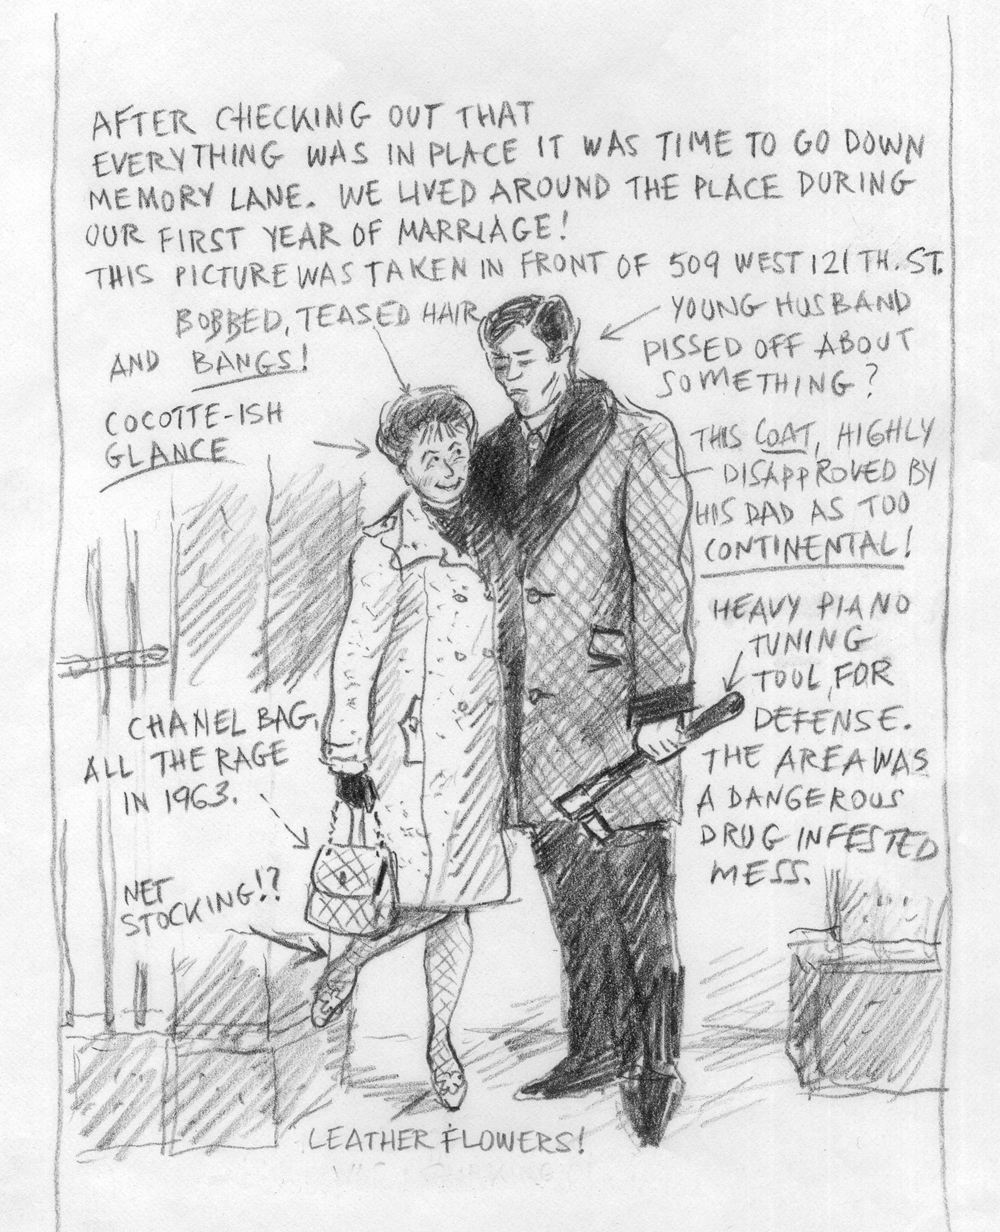 AFTER CHECKING OUT THAT
EVERYTHING WAS IN PLACE IT WAS TIME TO GO DOWN
MEMORY LANE. WE LIVED AROUND THE PLACE DURING
OUR FIRST YEAR OF MARRIAGE!
THIS PICTURE WAS TAKEN IN FRONT OF 509 WEST 121 TH. ST.
BOBBED, TEASED HAIR
AND BANGS!
YOUNG HUSBAND
PISSED OFF ABOUT
SOMETHING?
COCOTTE-ISH
GLANCE
THIS COAT, HIGHLY
DISAPPROVED BY
HIS DAD AS TOO
CONTINENTAL!
HEAVY PIANO
TUNING
TOOL, FOR
DEFENSE.
THE AREA WAS
A DANGEROUS
DRUG INFESTED
MESS.
CHANEL BAG,
ALL THE RAGE
IN 1963.
NET
STOCKING!?
LEATHER FLOWERS!